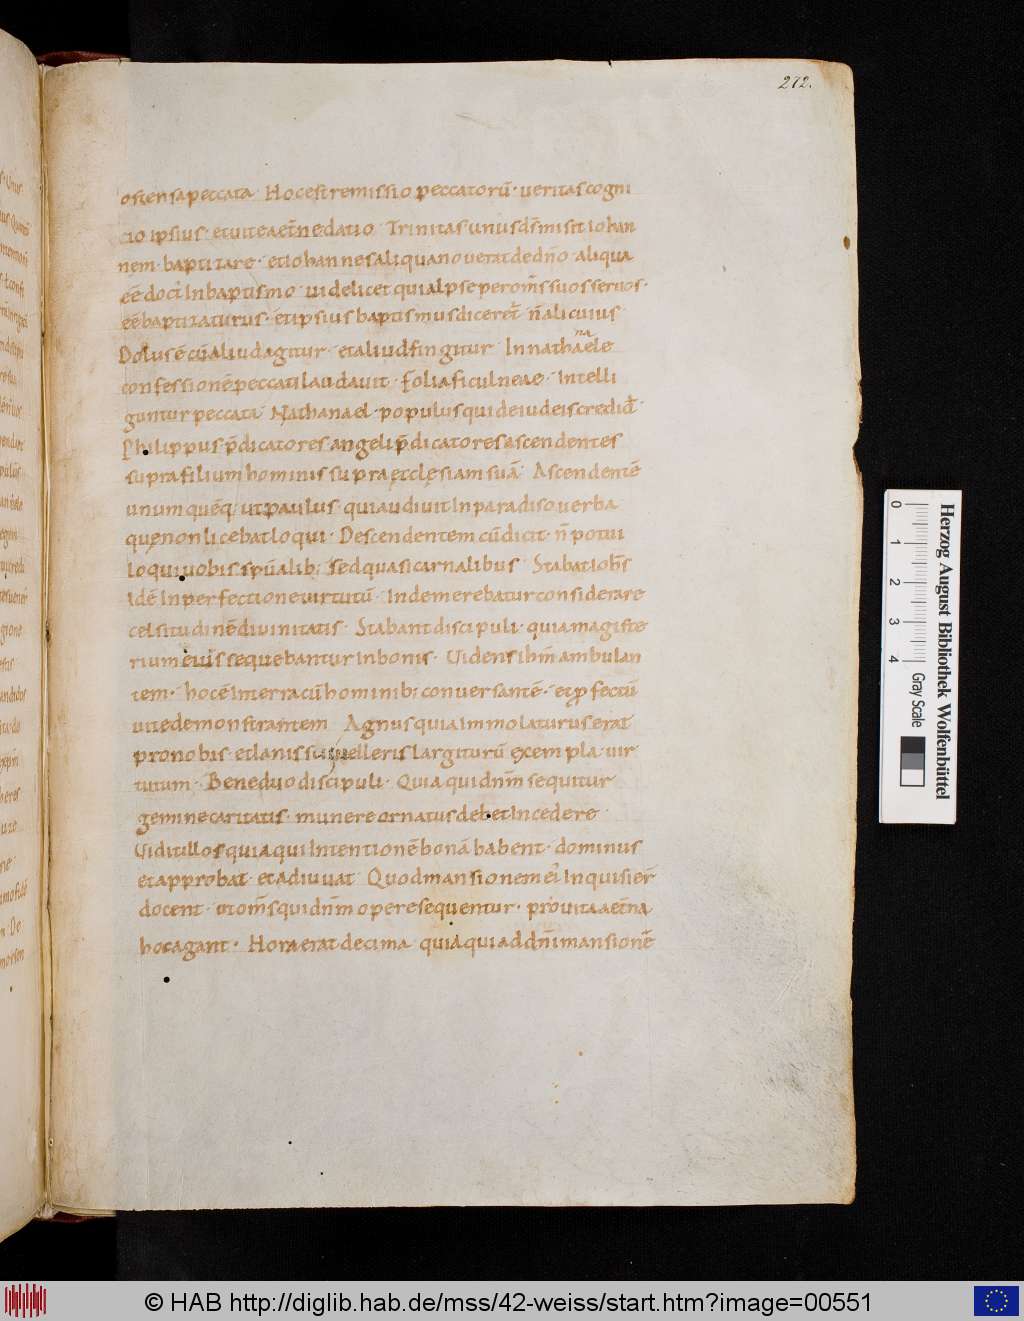 272.
ostensa peccata Hoc est remissio peccatorū · veritas cogni
cio ipsius · et uitea aet̄ne datio Trinitas unus dš misit iohan
nem · baptizare · et iohannes aliqua nouerat de dño aliqua
eē docti In baptismo uidelicet qui
eē baptizaturus · et ipsius baptismus diceret̄ n̄ alicuius
Dolus ē cū aliud agitur · et aliud fingitur In nathanaele
confessionē peccati laudauit · folia ficulneae · Intelli
guntur peccata Nathanael · populus qui de iudeis credid̄
Philippus p̄dicatores angeli p̄dicatores ascendentes
supra filium hominis supra ęcclęsiam suā Ascendentē
unumquēq; ut paulus · quia audiuit In paradiso uerba
quę non licebat loqui · Descendentem cū dicit · n̄ potui
loqui uobis sp̄ualib; sed quasi carnalibus Stabat ioh̄s
idē In perfectione uirtutū · Inde merebatur considerare
celsitudinē diuinitatis · Stabant discipuli · quia magiste
rium eius sequebantur In bonis · Uidens ihm̄ ambulan
tem · hoc ē In terra cū hominib; conuersantē · et pfectū
uite demonstrantem Agnus quia Immolaturus erat
pro nobis · et lanis sui uelleris Largiturū exempla uir
tutum · Bene duo discipuli · Quia qui dn̄m sequitur
gemine caritatis · munere ornatus debet Incedere
Uidit illos quia qui Intentionē bonā habent · dominus
et approbat · et adiuuat Quod mansionem ei Inquisier̄
docent · ut om̄s qui dn̄m opere sequentur · pro uita aet̄na
hoc agant · Hora erat decima quia qui ad dn̄i mansionē
0 1 2 3 4
Gray Scale
Herzog August Bibliothek Wolfenbüttel
© HAB http://diglib.hab.de/mss/42-weiss/start.htm?image=00551